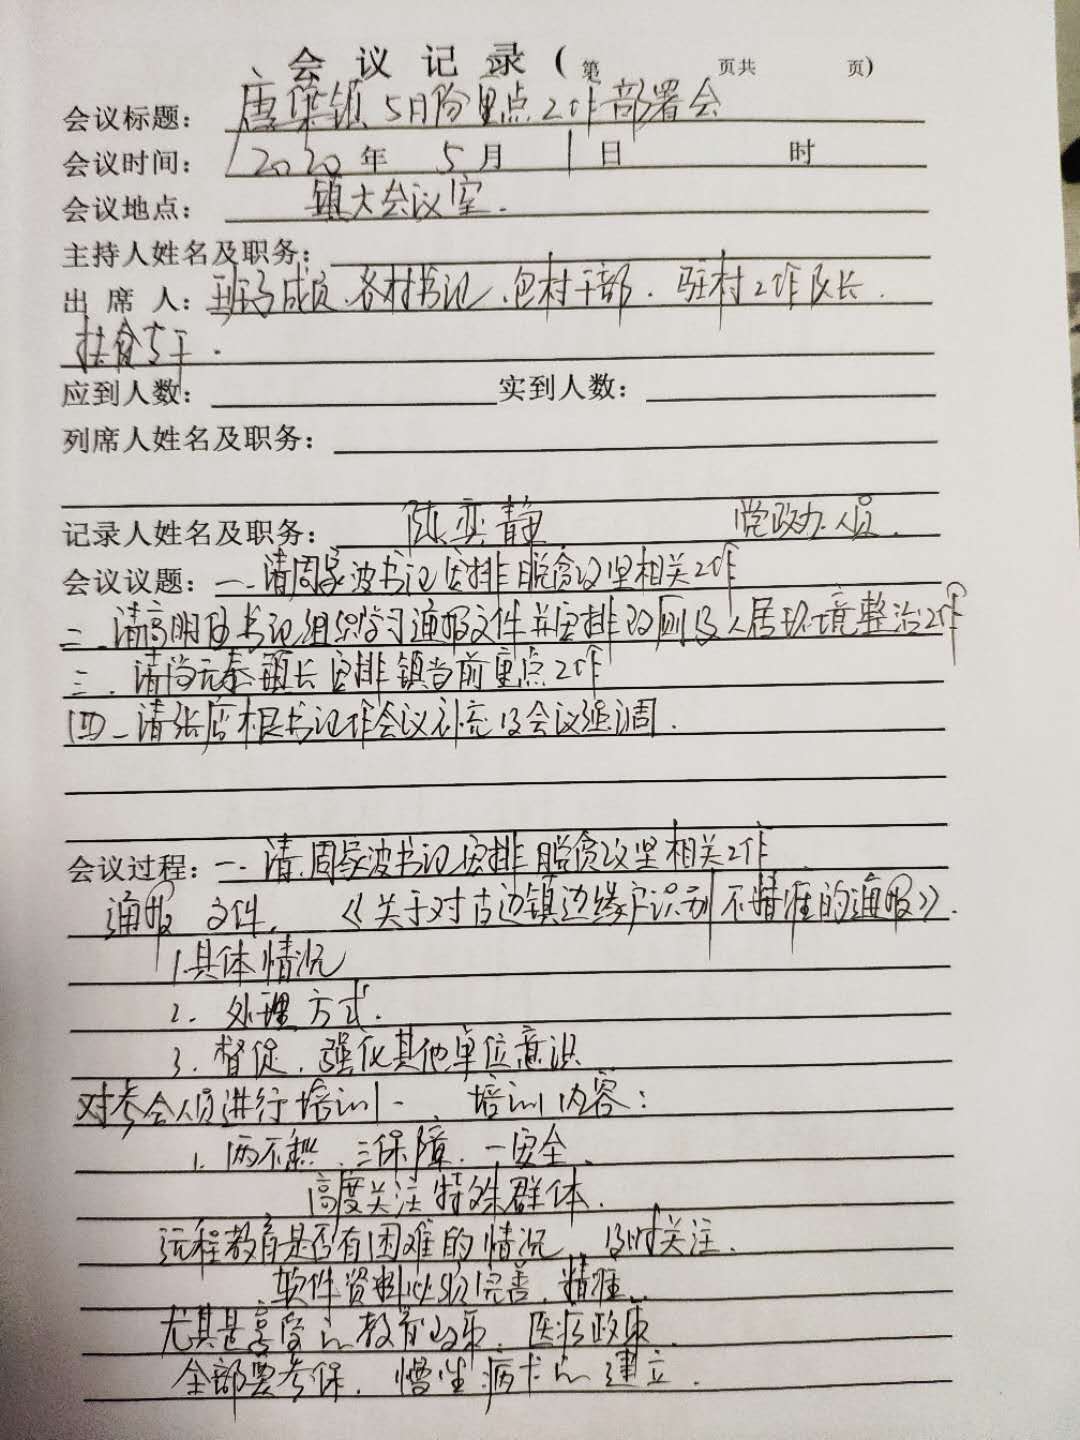 会议记录(第 页共 页)
会议标题：唐集镇5月份重点工作部署会
会议时间：2020年 5月 1日 时
会议地点：镇大会议室.
主持人姓名及职务：
出席人：班子成员、各村书记、包村干部、驻村工作队长、
扶贫专干.
应到人数： 实到人数：
列席人姓名及职务：
记录人姓名及职务：陆奕静 党政办人员.
会议议题：一、请周家波书记安排脱贫攻坚相关工作
二、请高明 书记组织学习通报文件并安排 厕及人居环境整治工作
三、请 元泰镇长安排镇当前重点工作
四、请张店根书记作会议补充及会议强调.
会议过程：一、请周家波书记安排脱贫攻坚相关工作
通报文件,《关于对古边镇边缘户识别不精准的通报》.
1.具体情况
2.处理方式.
3.督促、强化其他单位意识
对参会人员进行培训、培训内容：
1.两不愁、三保障、一安全、
高度关注特殊群体.
远程教育是否有困难的情况、及时关注、
软件资料必须完善、精准、
尤其是享受的教育政策、医疗政策、
全部要参保、慢性病卡的建立.